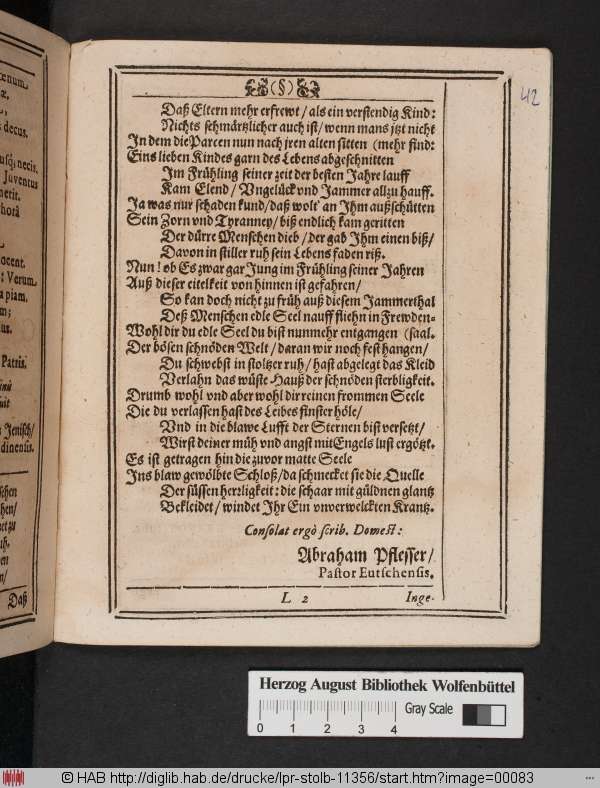 (§)
42
Daß Eltern mehr erfrewt / als ein verstendig Kind:
Nichts schmårtzlicher auch ist / wenn mans jtzt nicht
In dem die Parcen nun nach jren alten sitten (mehr find:
Eins lieben Kindes garn des Lebens abgeschnitten
Im Frühling seiner zeit der besten Jahre lauff
Kam Elend / Vngelück vnd Jammer allzu hauff.
Ja was nur schaden kund / daß wolt' an Ihm außschütten
Sein Zorn vnd Tyranney / biß endlich kam geritten
Der dürre Menschen dieb / der gab Ihm einen biß /
Davon in stiller ruh sein Lebens faden riß.
Nun! ob Es zwar gar Jung im Frühling seiner Jahren
Auß dieser eitelkeit von hinnen ist gefahren /
So kan doch nicht zu früh auß diesem Jammerthal
Deß Menschen edle Seel nauff fliehn in Frewden-
Wohl dir du edle Seel du bist nunmehr entgangen (saal.
Der bösen schnöden Welt / daran wir noch fest hangen /
Du schwebst in stoltzer ruh / hast abgelegt das Kleid
Verlahn das wüste Hauß der schnöden sterbligkeit.
Drumb wohl vnd aber wohl dir reinen frommen Seele
Die du verlassen hast des Leibes finster höle /
Vnd in die blawe Lufft der Sternen bist versetzt /
Wirst deiner müh vnd angst mit Engels lust ergötzt.
Es ist getragen hin die zuvor matte Seele
Ins blaw gewölbte Schloß / da schmecket sie die Quelle
Der süssen herzligkeit: die schaar mit güldnen glantz
Bekleidet / windet Ihr Ein vnverwelckten Krantz.
Consolat ergò scrib. Domest:
Abraham Pflesser /
Pastor Eutschensis.
L 2 Inge-
œnum
æ.
s decus.
usq; necis.
Juventus
nerit.
phorâ
ocent.
: Verum
a piam.
m;
us.
Patris.
uit
Jenisch /
dinensis.
schen
hen /
uh.
en
n /
Daß
Herzog August Bibliothek Wolfenbüttel
0 1 2 3 4 Gray Scale
© HAB http://diglib.hab.de/drucke/lpr-stolb-11356/start.htm?image=00083